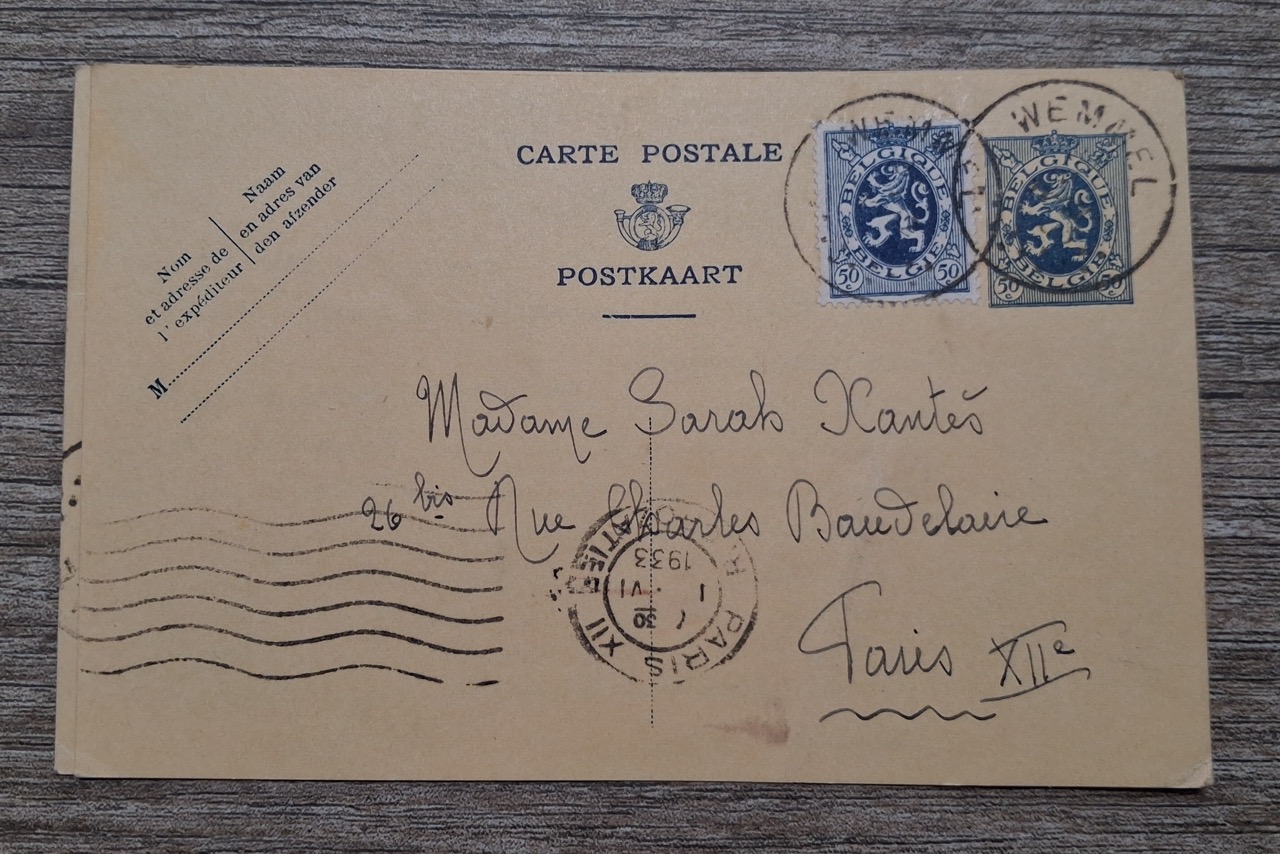 CARTE POSTALE
POSTKAART
Nom
et adresse de
l'expéditeur
Naam
en adres van
den afzender
M
WEMMEL
BELGIQUE
BELGIË
50c 50c
WEMMEL
BELGIQUE
BELGIË
50c 50c
Madame Sarah Xantès
26 bis Rue Charles Baudelaire
Paris XIIe
PARIS XII
1 VI
1933
30